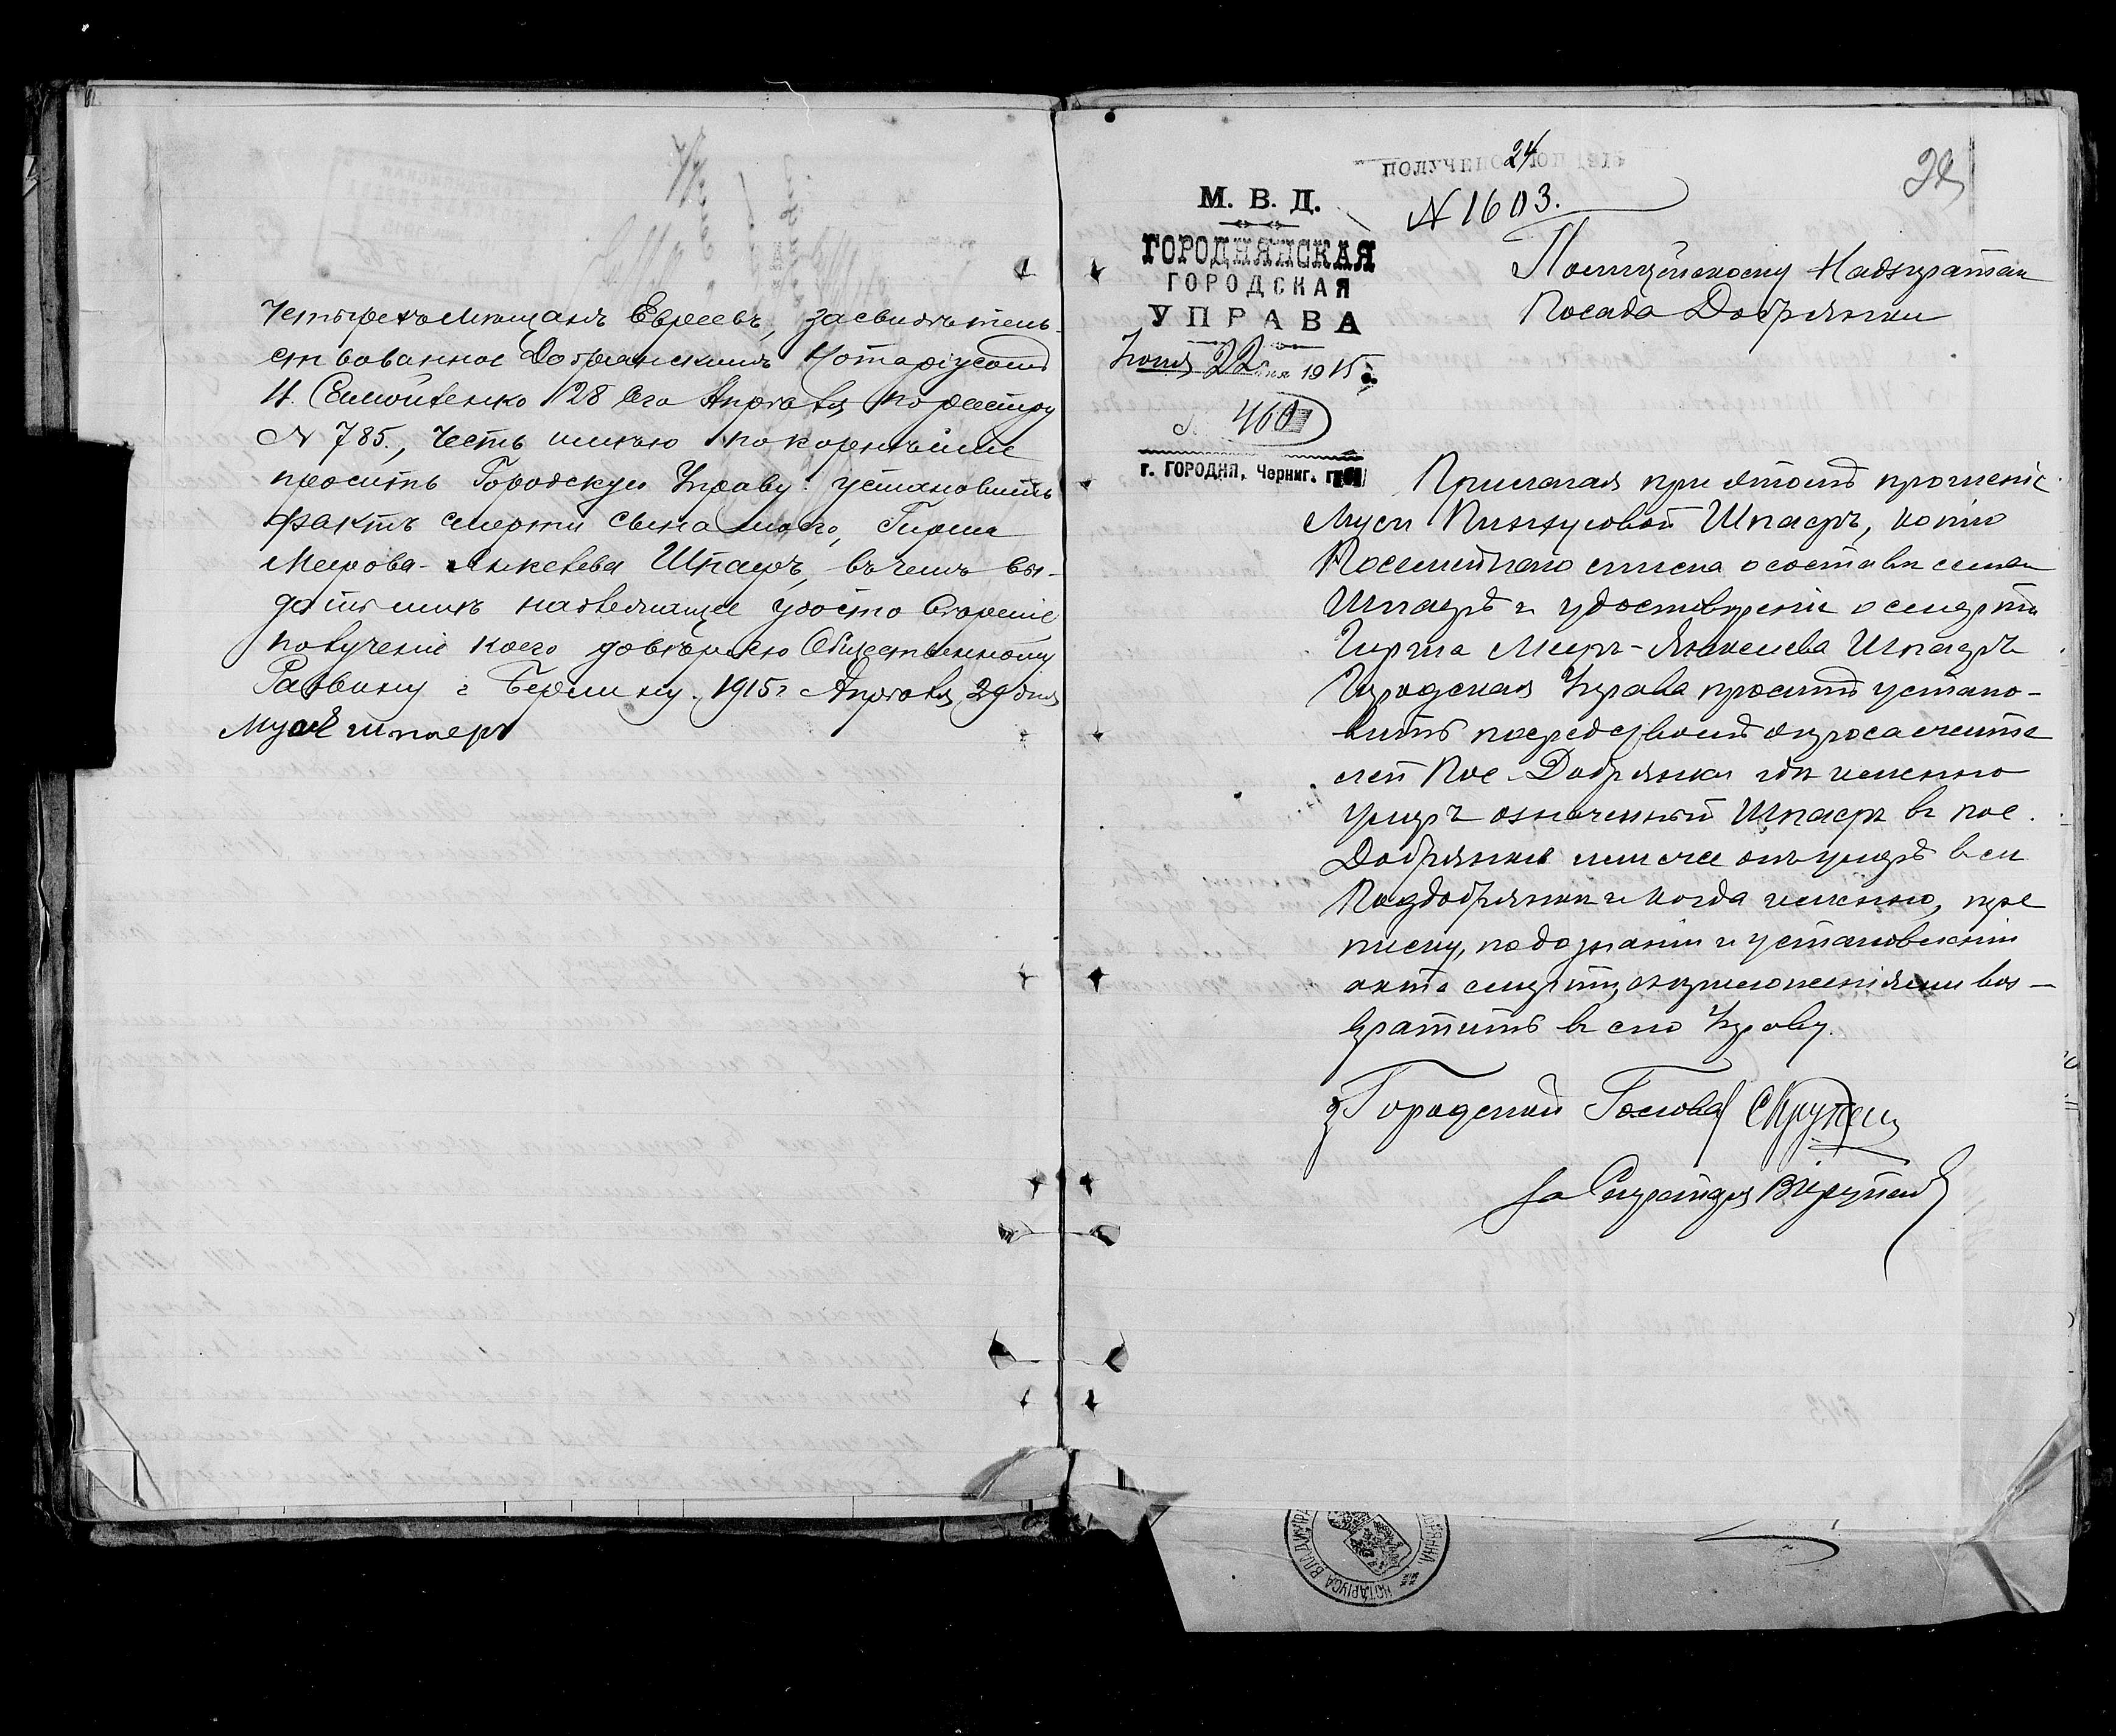 четырехъ мѣщанъ Евреевъ, засвидѣтель-
ствованное Добрянскимъ Нотаріусомъ
28 сего Апрѣля по реестру
N 785., честь имѣю покорнѣйше
просить Городскую Управу установить
фактъ смерти сына моего, Гирша
Меерова-Янкелева Шпаеръ, въ чемъ вы-
дать мнѣ надлежащее удостовѣреніе
получение коего довѣряю Общественному
Раввину г. Берлину. 1915 г Апрѣля 29 дня
Муся шпаеръ
ПОЛУЧЕНО 24 ІЮН 1915
N 1603.
М. В. Д.
ГОРОДНЯНСКАЯ
ГОРОДСКАЯ
УПРАВА
Іюня 22 дня 1915 г.
460
г. ГОРОДНЯ, Черниг. г.
Полицейскому Надзирателю
Посада Добрянки
Прилагая при этомъ прошеніе
Муси Пинхусовой Шпаеръ, копію
Посемейнаго списка о составѣ семьи
Шпаеръ и удостовѣреніе о смерти
Гирша Меиръ-Янкелева Шпаеръ
Городская Управа проситъ устано-
вить посредствомъ опроса жите
лей Пос. Добрянки гдѣ именно
умеръ означенный Шпаеръ въ пос.
Добрянкѣ или же онъ умеръ въ с.
Поддобрянкѣ и когда именно, пере
писку, по дознаніи и установленіи
акта смерти, съ приложеніями воз-
вратить въ сію Управу.
Городской Голова
За Секретаря
НОТАРІУСА ВЛАДИМІРА